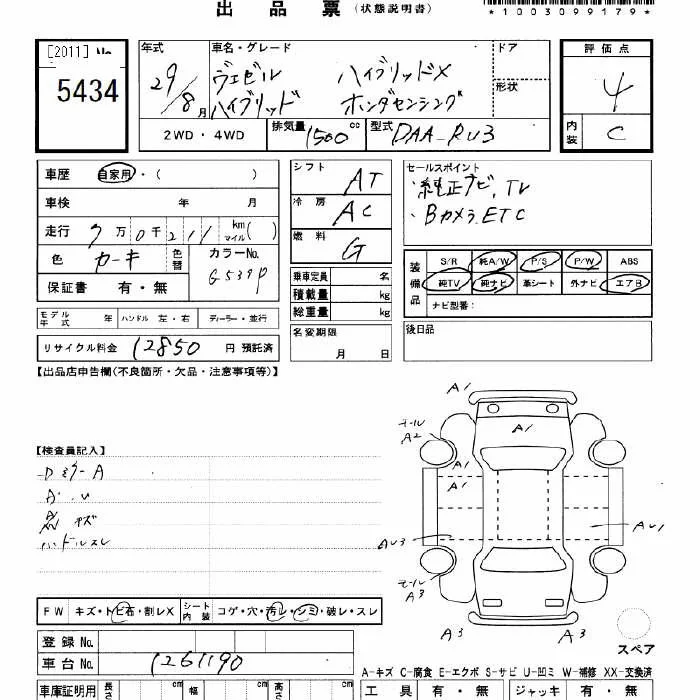 出品票(状態説明書)
*1003099179*
[2011] No.
5434
年式
29/8月
車名・グレード
ヴェゼル ハイブリッドX
ハイブリッド ホンダセンシング
ドア
形状
2WD・4WD
排気量 1500cc
型式 DAA-RU3
評価点
4
内装 C
車歴 自家用・( )
車検 年 月
走行 7万0千211 km(マイル)( )
色 カーキ
色替
カラーNo. G539P
保証書 有・無
シフト AT
冷房 AC
燃料 G
乗車定員 名
積載量 kg
総重量 kg
名変期限
月 日
セールスポイント
・純正ナビ, TV
・Bカメラ, ETC
装備品
S/R 純A/W P/S P/W ABS
純TV 純ナビ 革シート 外ナビ エアB
ナビ型番:
後日品
モデル年式 年 ハンドル 左・右 ディーラー・並行
リサイクル料金 12850 円 預託済
【出品店申告欄(不良箇所・欠品・注意事項等)】
【検査員記入】
ハンドルスレ
A1
A1
モール A2
A1
A1
AU3
AU1
モール A3
A3
A3
スペア
FW キズ・トビ石・割レX シート内装 コゲ・穴・汚レ・シミ・破レ・スレ
登録No.
車台No. 1261190
A-キズ C-腐食 E-エクボ S-サビ U-凹ミ W-補修 XX-交換済
車庫証明用 長さ cm 幅 cm 高さ cm
工具 有・無 ジャッキ 有・無